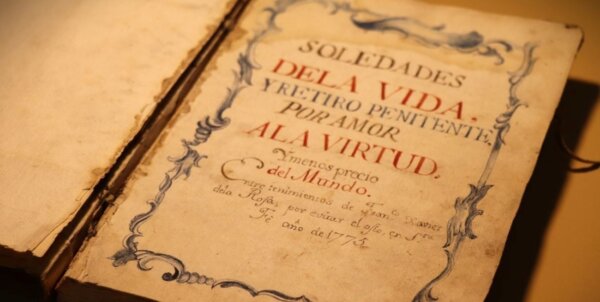 SOLEDADES
DELA VIDA.
Y RETIRO PENITENTE,
POR AMOR
ALA VIRTUD.
Y menos precio
del Mundo.
Entre tenimientos de Franco Xavier
dela Rosa, por evitar el ofio, en Sta
Fè año de 1775